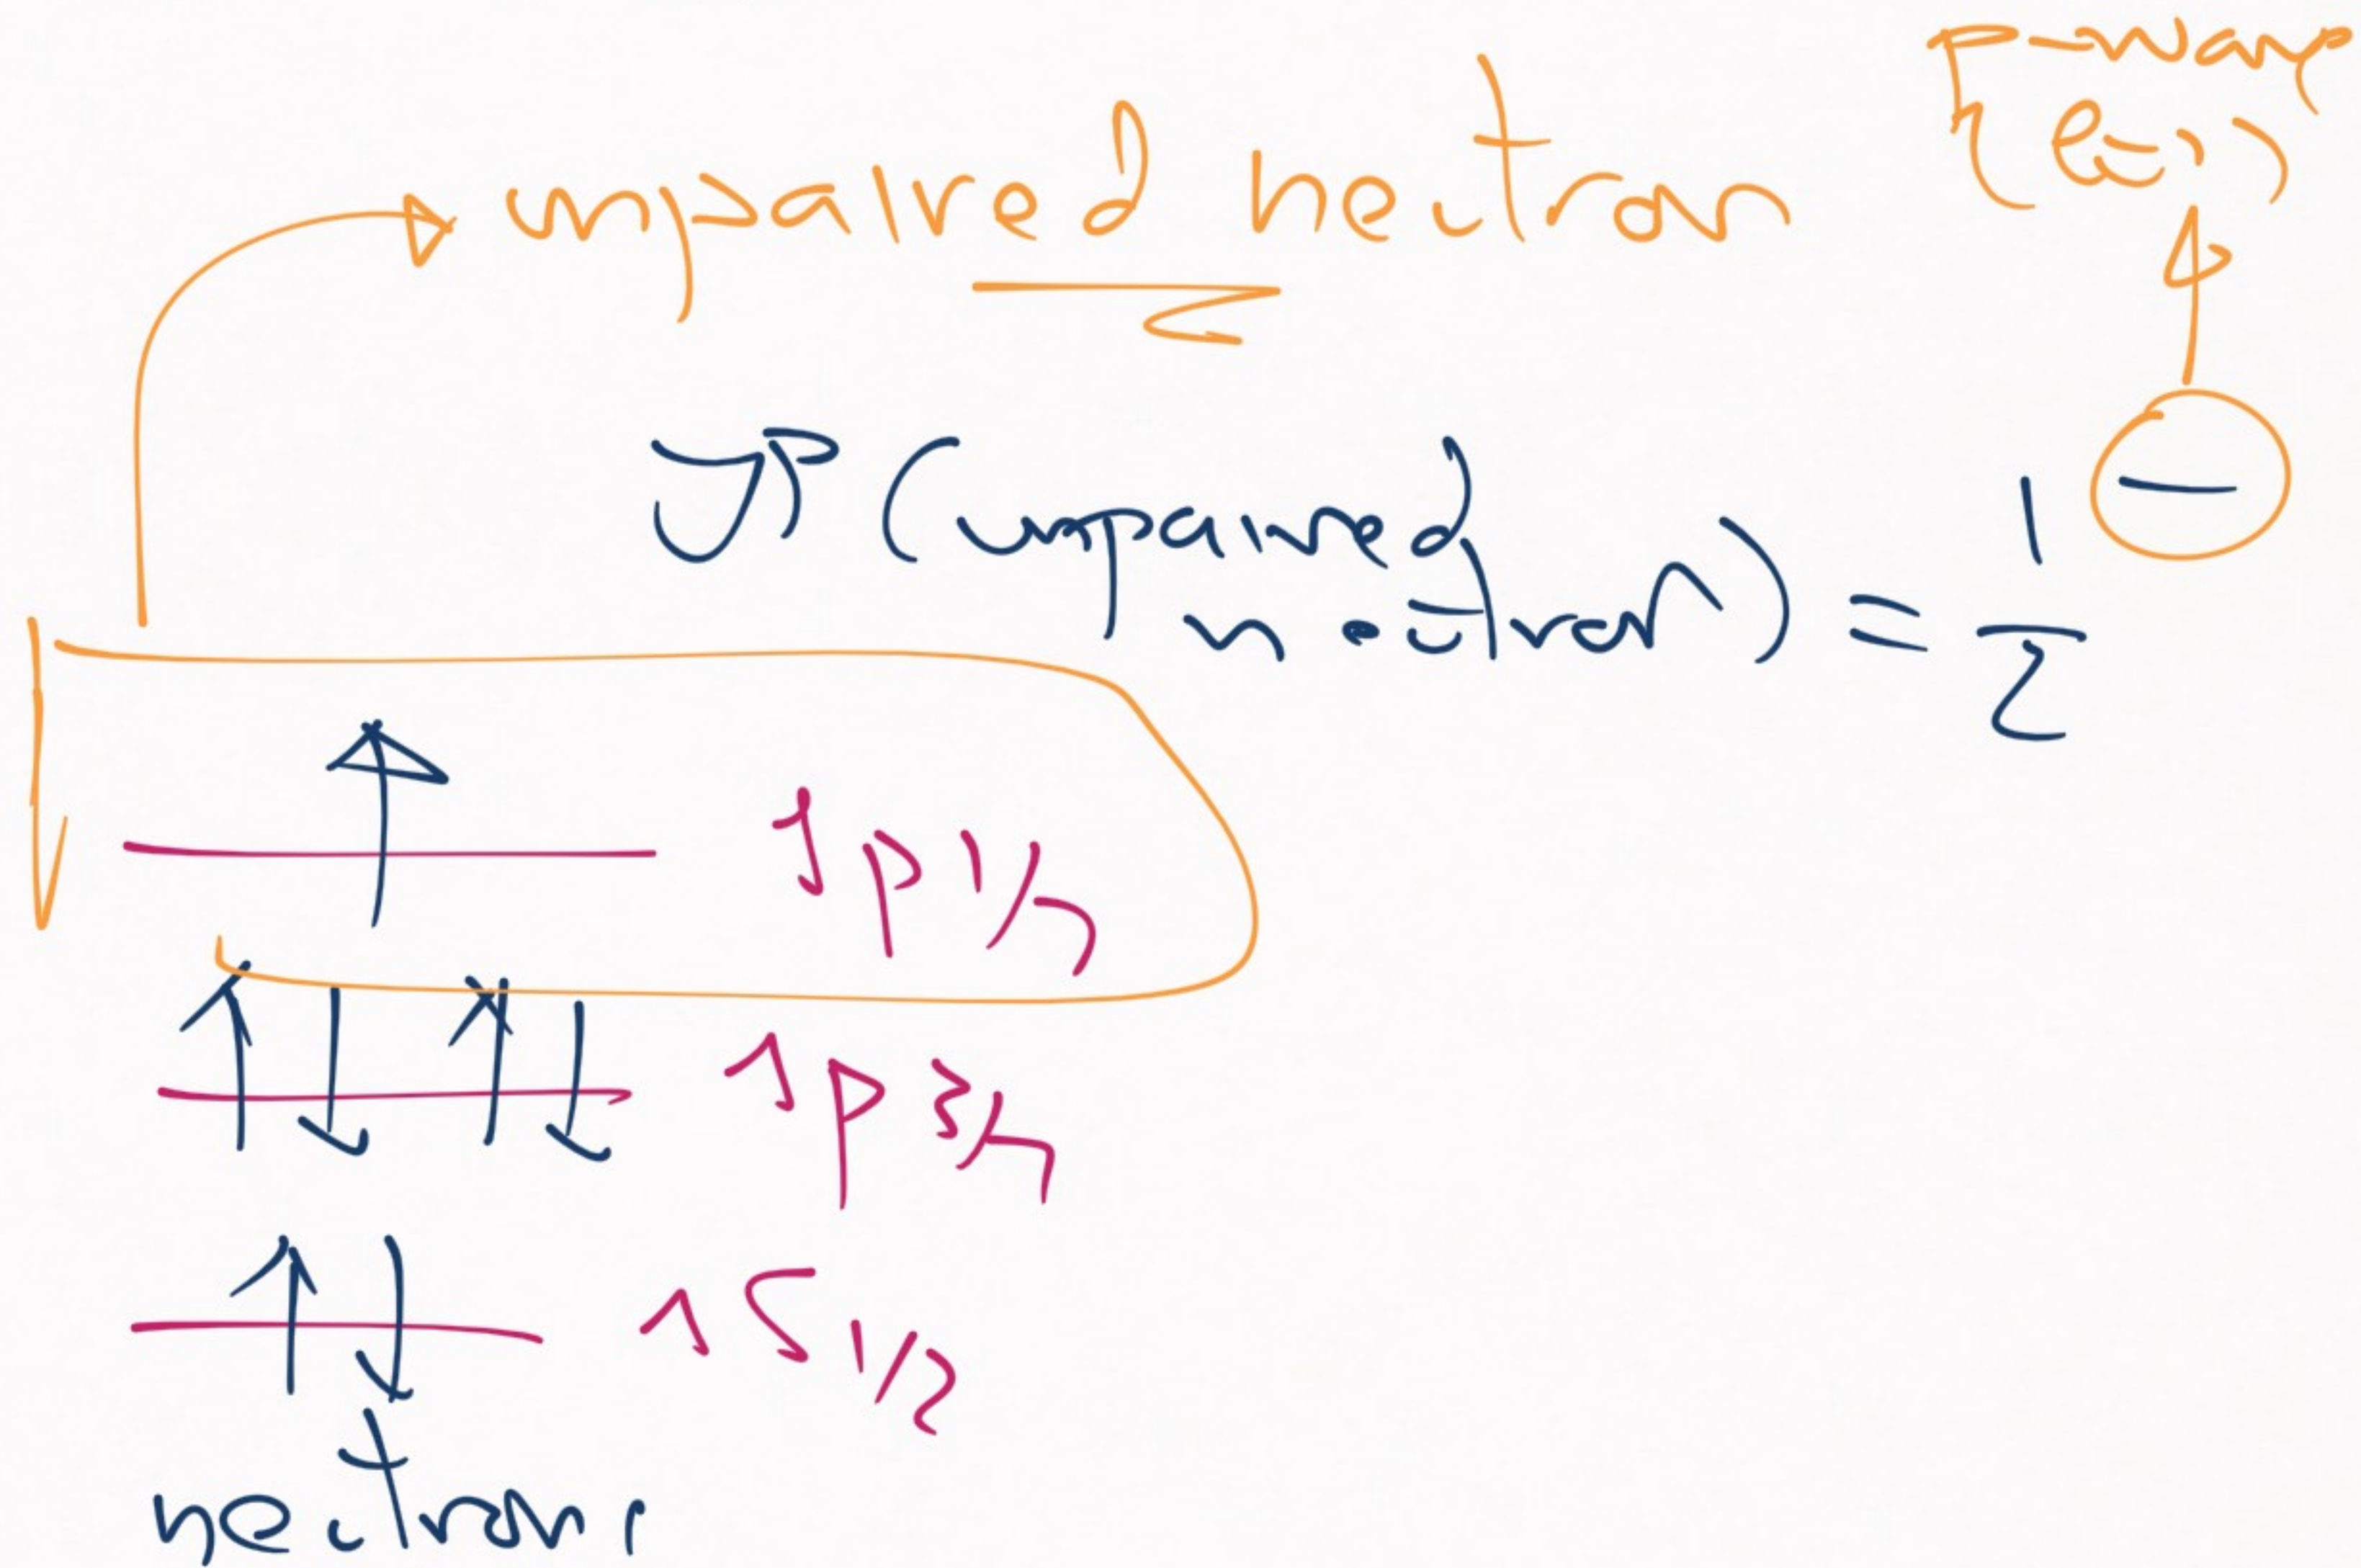 p-wave
unpaired neutron (l=1)
JP (unpaired
neutron) = 1/2 -
1p1/2
1p3/2
1s1/2
neutrons